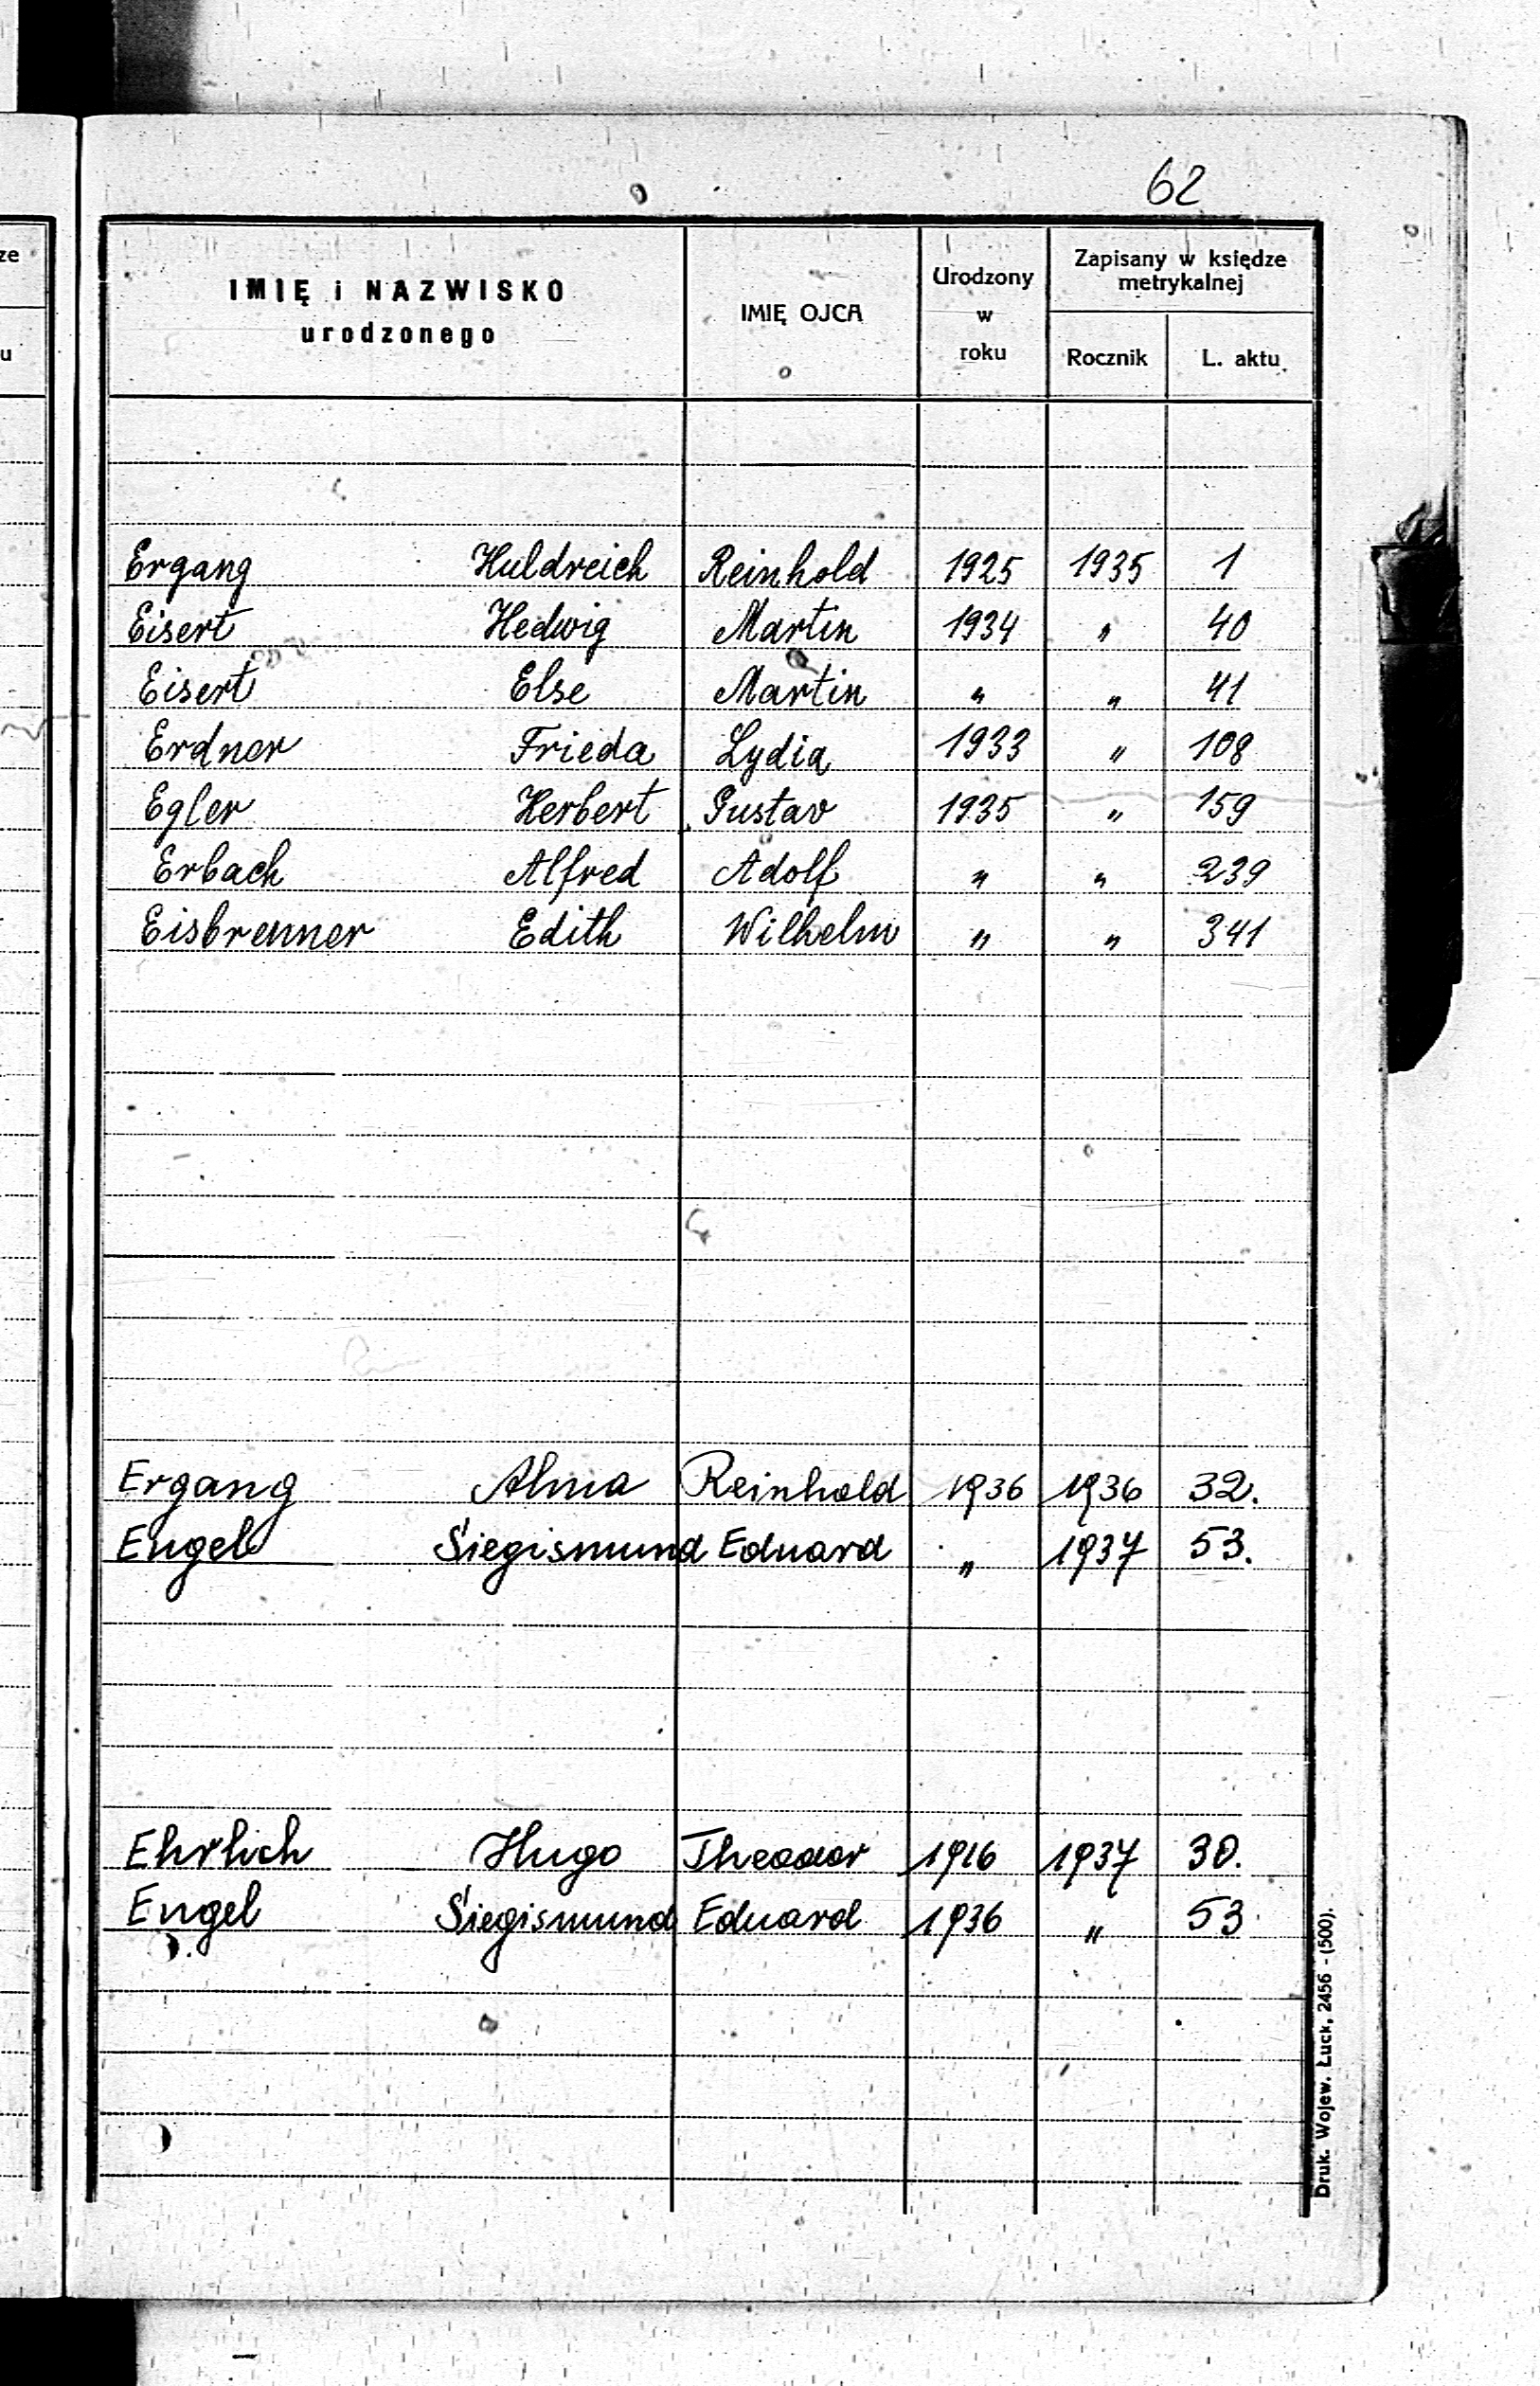 62
IMIĘ i NAZWISKO urodzonego IMIĘ OJCA Urodzony w roku Zapisany w księdze metrykalnej
Rocznik L. aktu
Ergang Huldreich Reinhold 1925 1935 1
Eisert Hedwig Martin 1934 " 40
Eisert Else Martin " " 41
Erdner Frieda Lydia 1933 " 108
Egler Herbert Gustav 1935 " 159
Erbach Alfred Adolf " " 239
Eisbrenner Edith Wilhelm " " 341
Ergang Alma Reinhold 1936 1936 32.
Engel Siegismund Eduard " 1937 53.
Ehrlich Hugo Theodor 1916 1937 30.
Engel Siegismund Eduard 1936 " 53
Druk. Wojew. Łuck, 2456 - (500).
ze
u